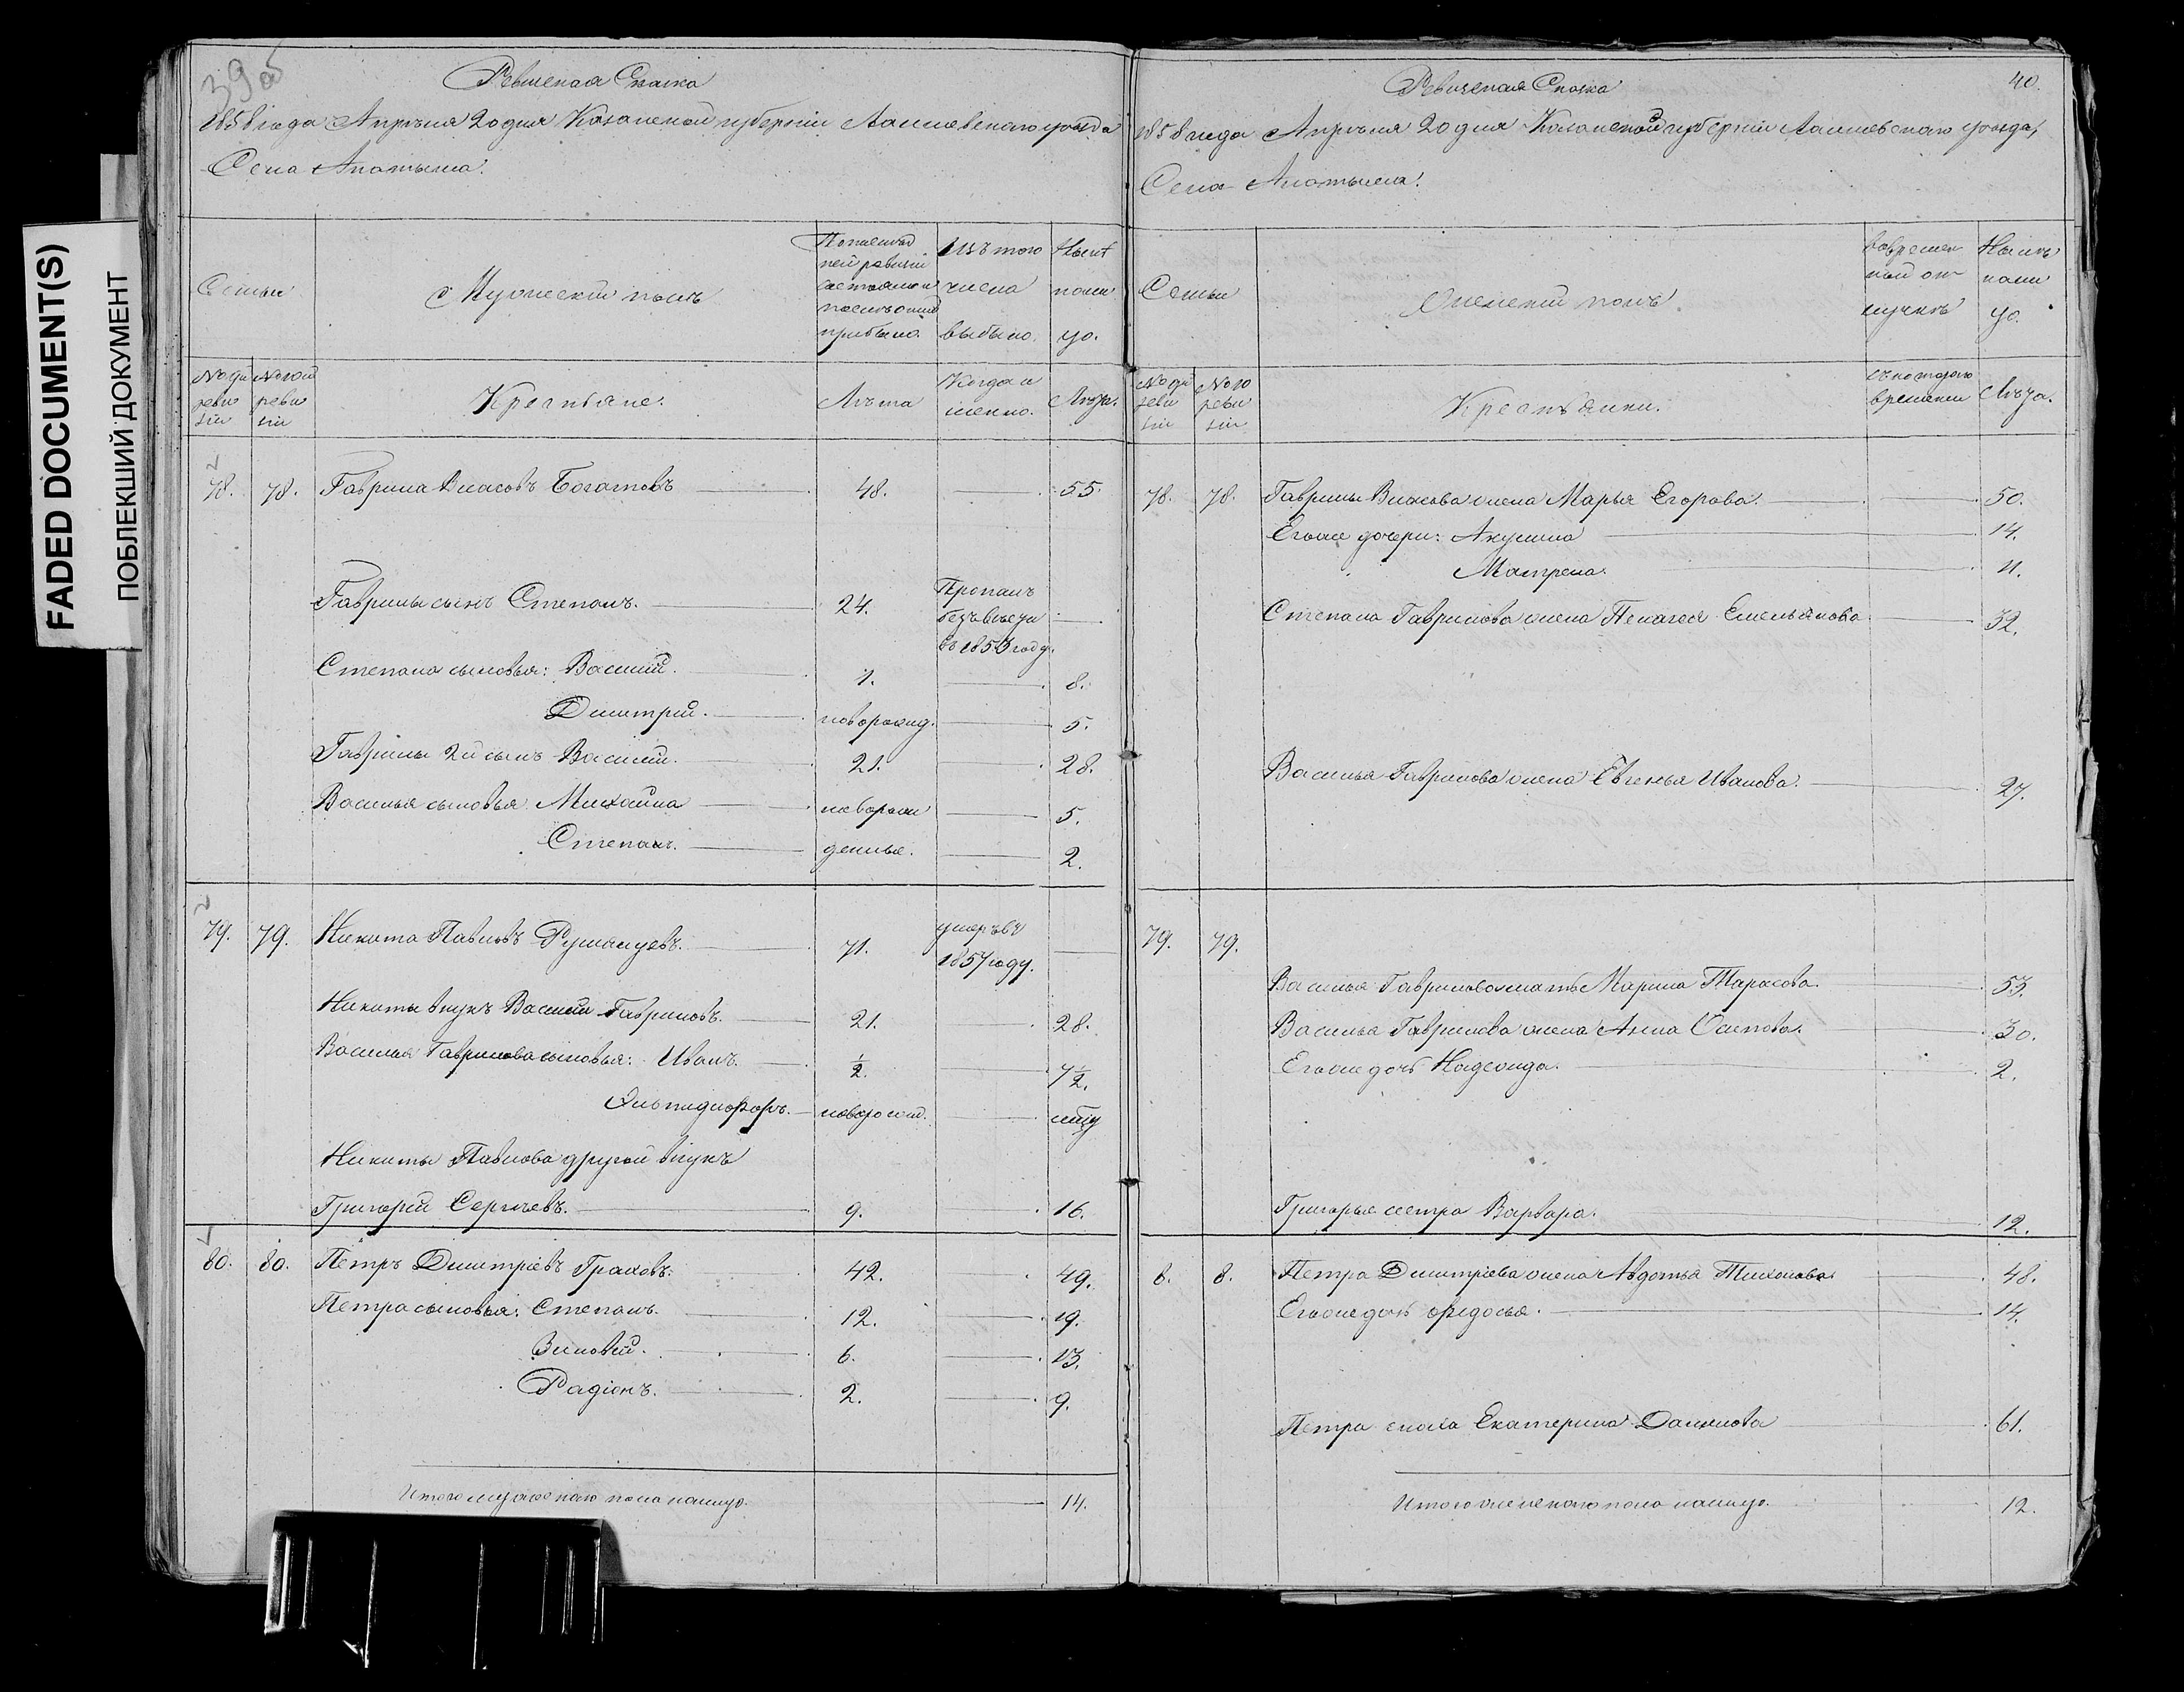 FADED DOCUMENT(S)
ПОБЛЕКШИЙ ДОКУМЕНТ
39об
Ревизская Сказка
1858 года Апрѣля 20 дня Казанской губерніи Лаишевскаго уѣзда
Села
Семьи
Мужескій полъ
По послѣд
ней ревизіи
состояло и
послѣ оной
прибыло.
Изъ того
числа
выбыло.
Нынѣ
нали
цо.
№ оди
реви
зіи
№ той
реви
зіи
Крестьяне.
Лѣта
Когда и
менно.
Лѣта.
78. 78. Гаврила Власовъ Богатовъ 48. 55.
Гаврилы сынъ Степанъ. 24.
Пропалъ
безъ вѣсти
въ 1853 году.
Степана сыновья: Василій. 1. 8.
Дмитрій. новорожд. 5.
Гаврилы 2й сынъ Василій. 21. 28.
Василья сыновья Михайла новорож 5.
Степанъ. денные. 2.
79. 79. Никита Павловъ Румянцевъ. 71.
умеръ въ
1857 году.
Никиты внукъ Василій Гавриловъ. 21. 28.
Василья Гаврилова сыновья: Иванъ. ½. 7½.
Элпидифоръ. новорожд.
Никиты Павлова другой внукъ
Григорій Сергѣевъ. 9. 16.
80. 80. Петръ Дмитріевъ Граховъ. 42. 49.
Петра сыновья: Степанъ. 12. 19.
Зиновій. 6. 13.
Радіонъ. 2. 9.
Итого мужескаго пола налицо. 14.
40.
Ревизская Сказка
1858 года Апрѣля 20 дня Казанской губерніи Лаишевскаго уѣзда,
Села
Семьи
Женскій полъ.
Во времен
ной от
лучкѣ
Нынѣ
нали
цо.
№ оди
реви
зіи
№ то
реви
зіи
Крестьянки.
съ котораго
времени
Лѣта.
78. 78. Гаврилы Власова жена Марья Егорова. 50.
Егоже дочери: Акулина 14.
Матрена. 11.
Степана Гаврилова жена Пелагея Емельянова 32.
Василья Гаврилова жена Евгенья Иванова. 27.
79. 79.
Василья Гаврилова мать Марина Тарасова. 53.
Василья Гаврилова жена Анна Осипова. 30.
Егоже дочь Надежда. 2.
Григорья сестра Варвара. 12.
8. 8. Петра Дмитріева жена Авдотья Тихонова 48.
Егоже дочь Ѳедосья. 14.
Петра сноха Екатерина Данилова 61.
Итого женскаго пола налицо. 12.